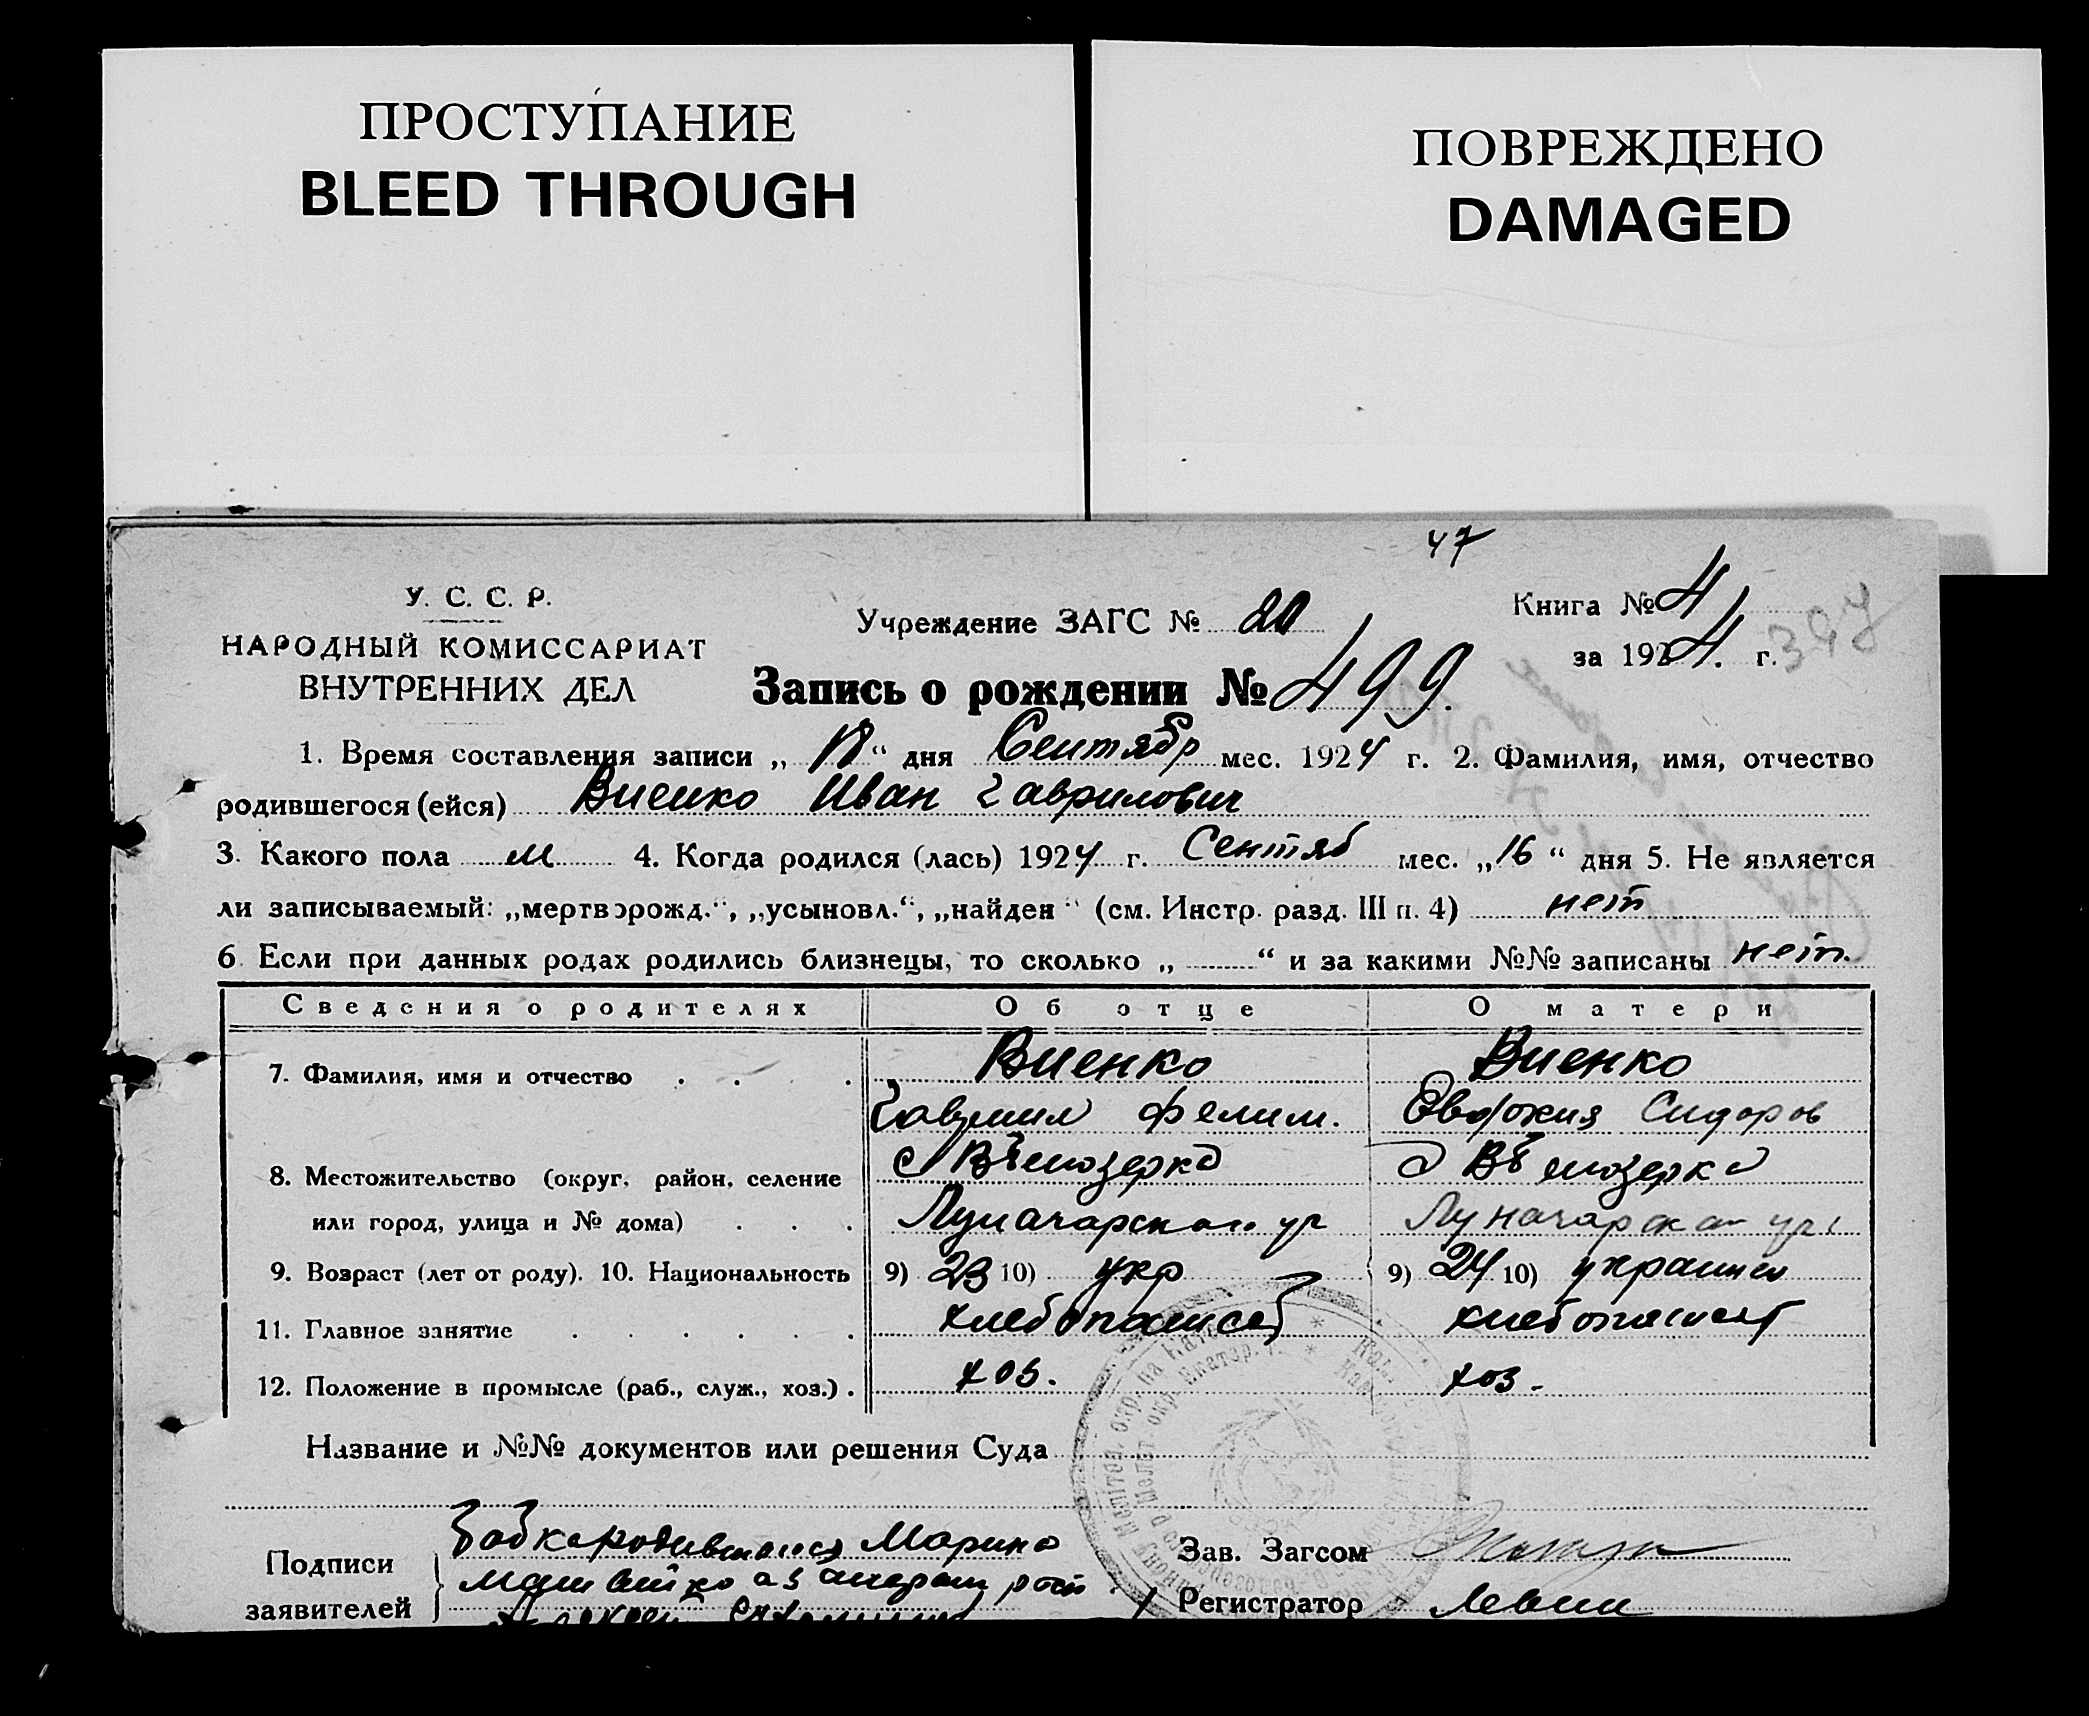 ПРОСТУПАНИЕ
BLEED THROUGH
ПОВРЕЖДЕНО
DAMAGED
47
У. С. С. Р.
НАРОДНЫЙ КОМИССАРИАТ
ВНУТРЕННИХ ДЕЛ
Учреждение ЗАГС № 20
Книга № 4
за 1924. г.
Запись о рождении № 499.
1. Время составления записи „ “ дня Сентябр мес. 1924 г. 2. Фамилия, имя, отчество
родившегося (ейся) Виенко Иван Гаврилович
3. Какого пола м 4. Когда родился (лась) 1924 г. Сентяб мес. „16“ дня 5. Не является
ли записываемый: „мертворожд.“, „усыновл.“, „найден“ (см. Инстр. разд. III п. 4) нет
6. Если при данных родах родились близнецы, то сколько „ “ и за какими №№ записаны нет.
Сведения о родителях Об отце О матери
7. Фамилия, имя и отчество . . . . Виенко Виенко
Гавриил Филим. Евдокия Сидоров
8. Местожительство (округ, район, селение с Вѣлозерка с Вѣлозерка
или город, улица и № дома) . . . Луначарская ул Луначарская ул
9. Возраст (лет от роду). 10. Национальность 9) 23 10) укр 9) 24 10)
11. Главное занятие . . . . . . хлебопашест хлебопашест
12. Положение в промысле (раб., служ., хоз.) . хоз. хоз.
Название и №№ документов или решения Суда
Подписи
заявителей
Марина
Зав. Загсом
Регистратор Левин